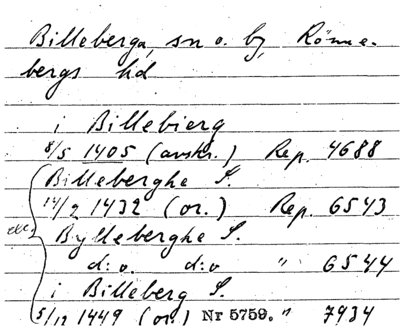 Billeberga, sn o. by, Rönne-
bergs hd
i Billebierg
8/5 1405 (avskr.) Rep. 4688
Billeberghe S.
14/2 1432 (or.) Rep. 6543
Bylleberghe S.
d:o. d:o " 6544
i Billeberg S.
5/12 1449 (or.) Nr 5759. " 7434